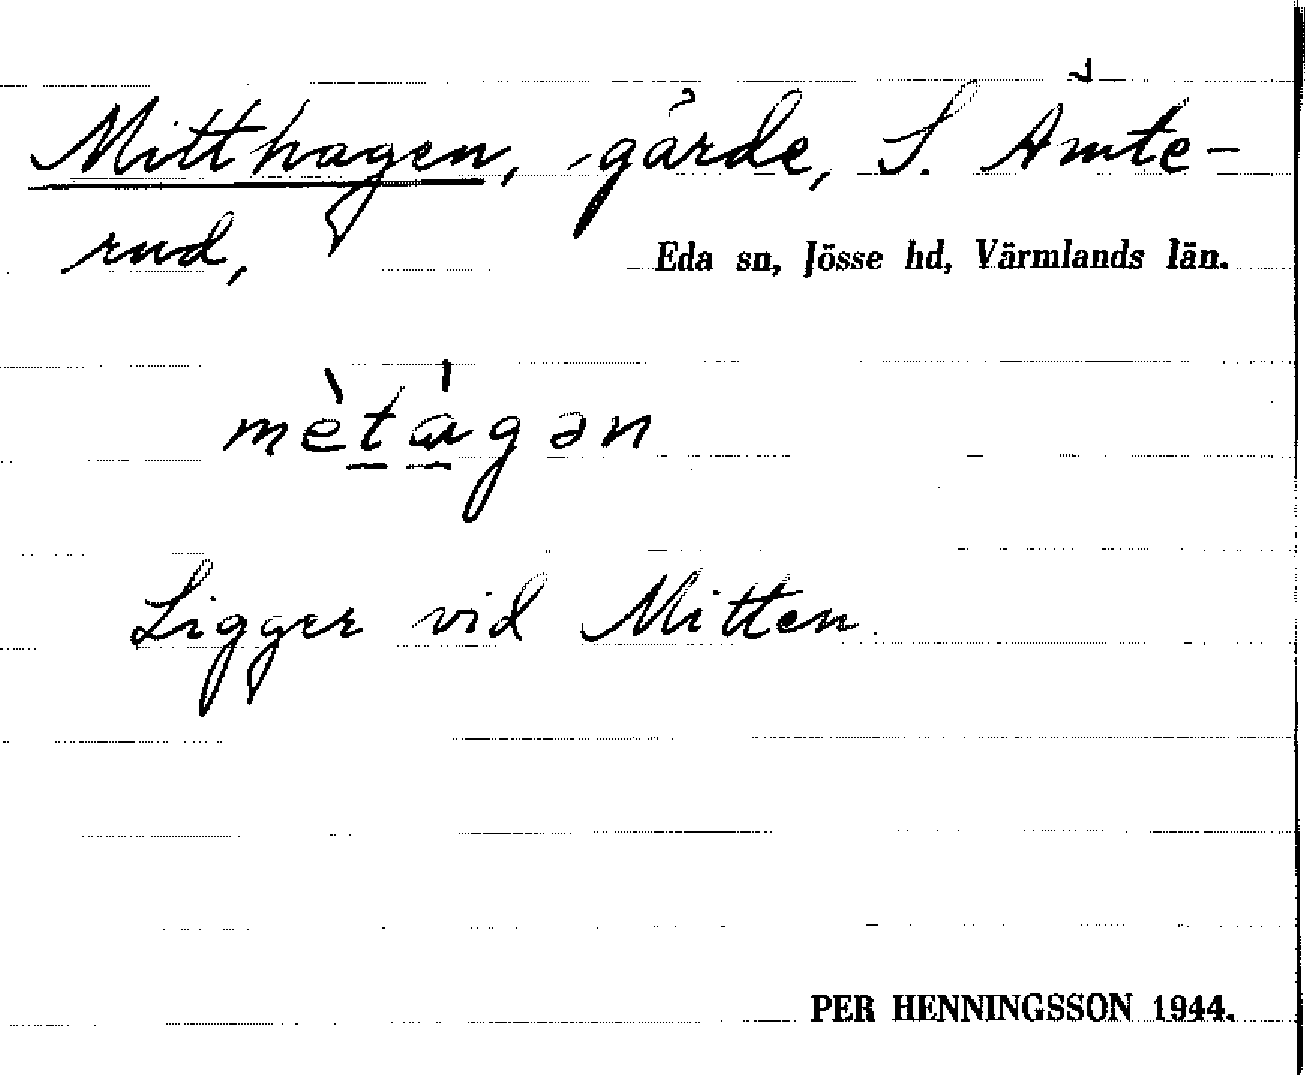 Mitthagen, gärde, S. Ämte-
rud,
Eda sn, Jösse hd, Värmlands län.
mètágən
Ligger vid Mitten.
PER HENNINGSSON 1944.